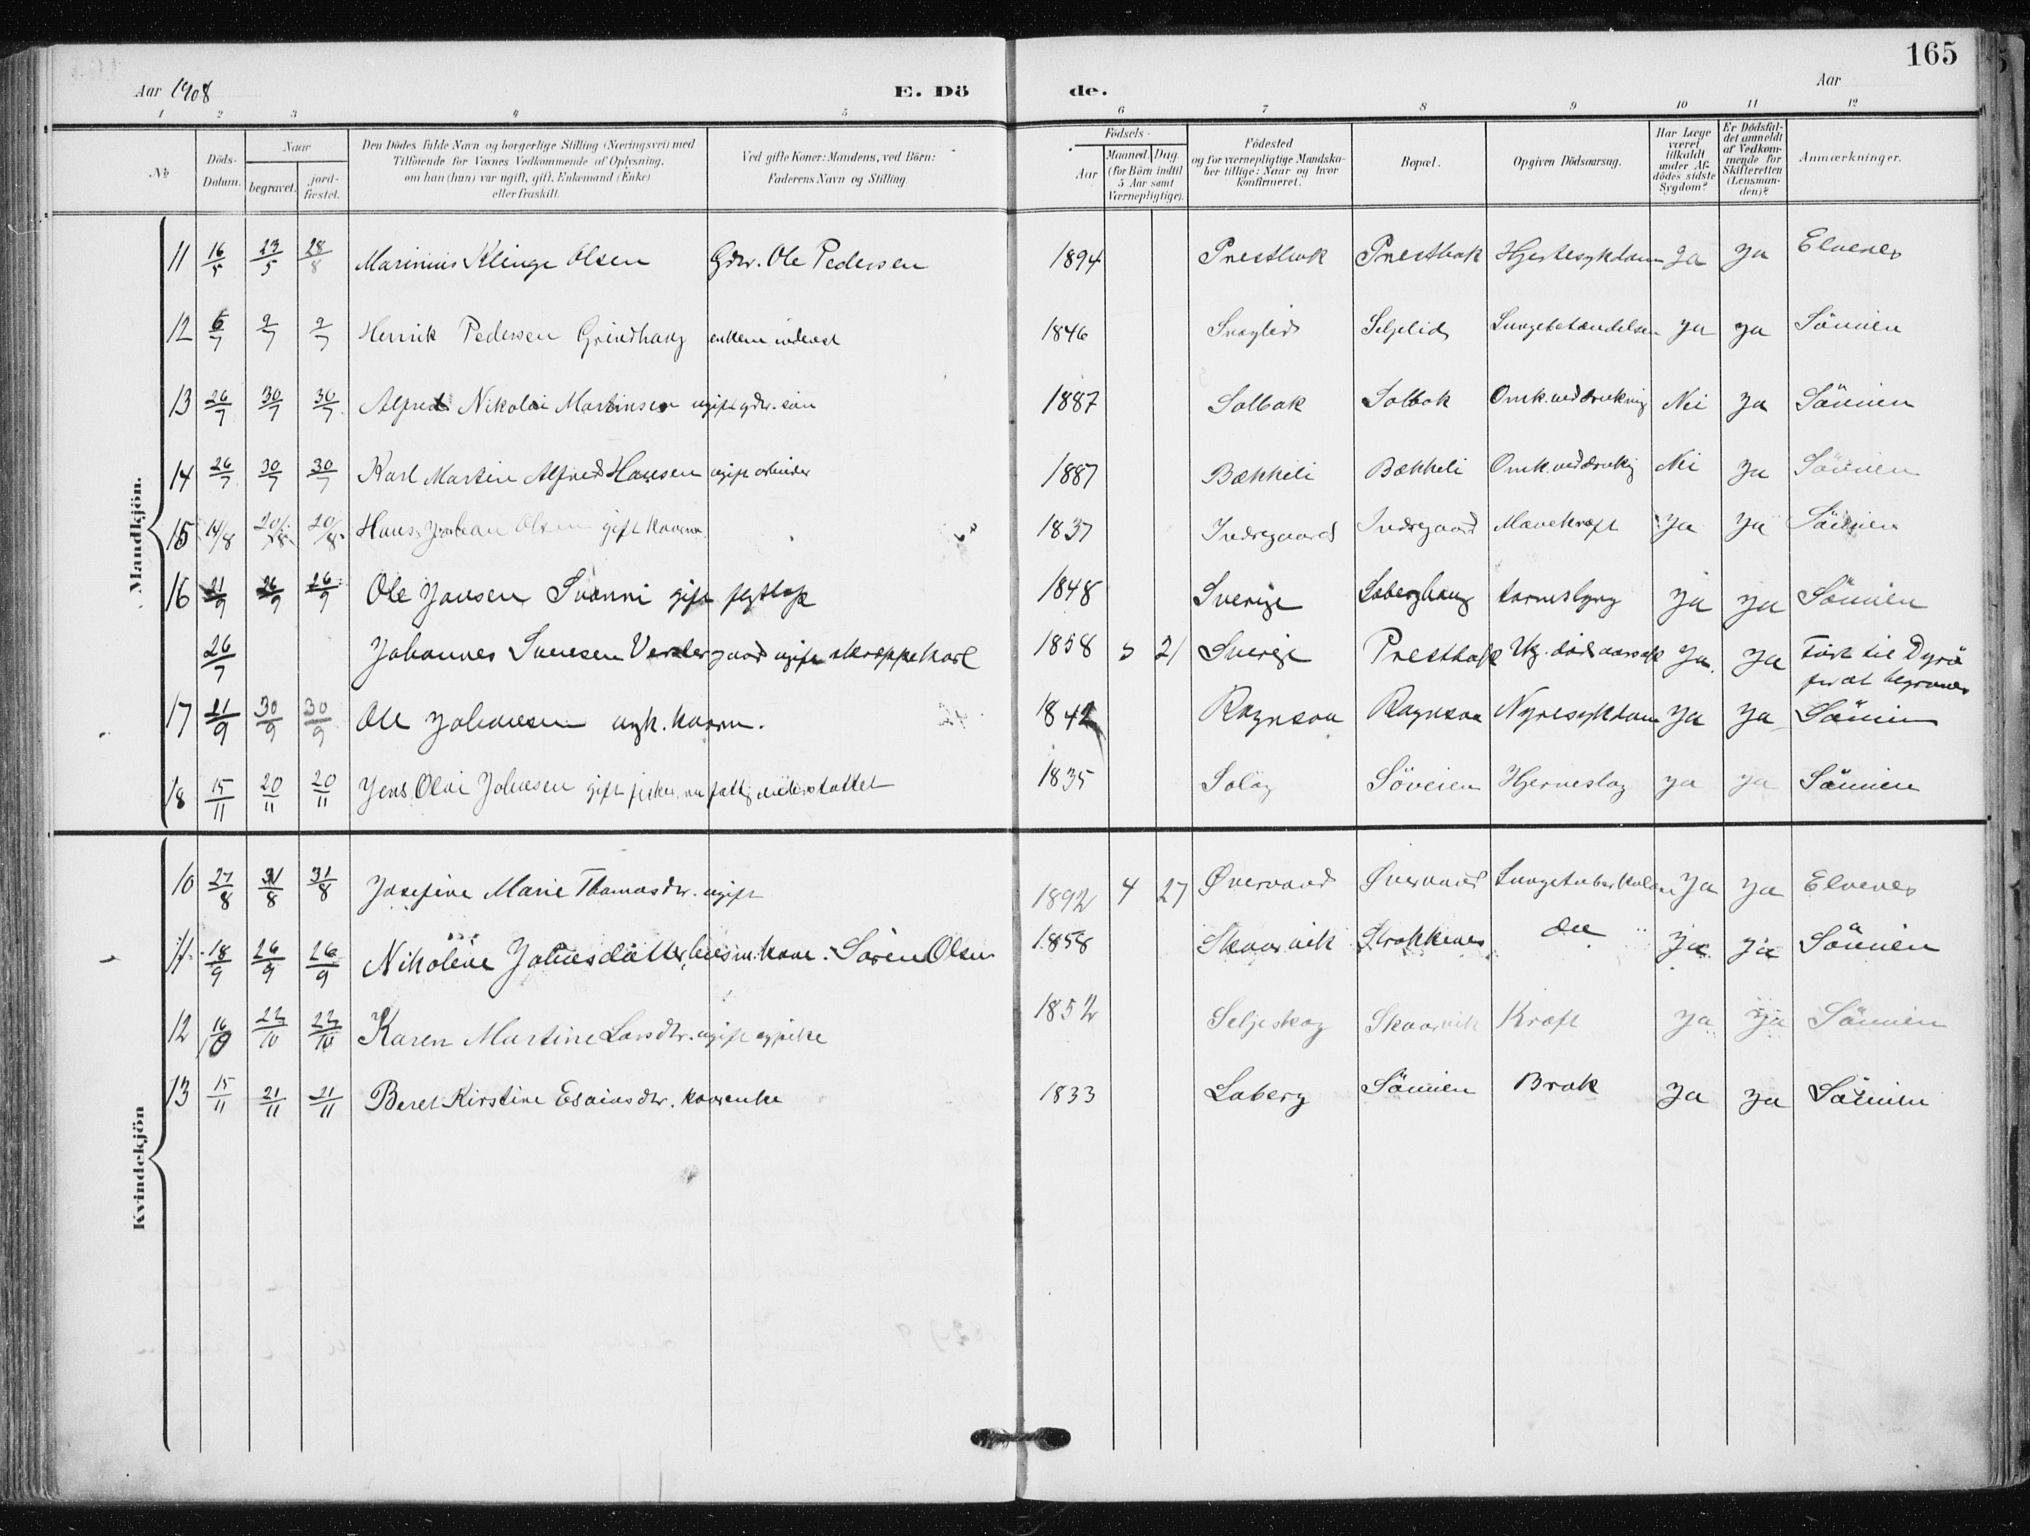 165
Aar 1908 E. Dö de. Aar
1 2 3 4 5 6 7 8 9 10 11 12
No
Döds-Datum.
Naar
begravet. jordfæstet.
Den Dödes fulde Navn og borgerlige Stilling (Næringsvei) med
Tilföiende for Voxnes Vedkommende af Oplysning,
om han (hun) var ugift, gift, Enkemand (Enke)
eller fraskilt.
Ved gifte Koner: Mandens, ved Börn:
Faderens Navn og Stilling.
Födsels-
Aar Maaned. Dag.
(for Börn indtil 5 Aar samt Værnepligtige).
Födested
og for værnepligtige Mandskaber tillige: Naar og hvor konfirmeret.
Bopæl.
Opgiven Dödsaarsag.
Har Læge været tilkaldt under Afdödes sidste Sygdom?
Er Dödsfaldet anmeldt af Vedkommende for Skifteretten (Lensmanden)?
Anmærkninger.
Mandkjön.
11 16/5 23/5 28/8 Marinius Klinge Olsen Gdbr. Ole Pedersen 1894 Prestbak Prestbak Hjertesykdom Ja Ja Elvenes
12 6/7 9/7 9/7 Henrik Pedersen Grindhaug 1846 Seljelid Lungebetændelse Ja Ja Sörreien
13 26/7 30/7 30/7 Alfred Nikolai Martinsen ugift gdbr. sön 1887 Solbak Solbak Omk. ved drukning Nei Ja Sörreien
14 26/7 30/7 30/7 Karl Martin Alfred Hansen ugift arbeider 1887 Bækkeli Bækkeli Omk. ved drukng Nei Ja Sörreien
15 14/8 20/8 20/8 Hans Johan Olsen gift kaarm. 1837 Indregaard Indregaard Mavekræft Ja Ja Sörreien
16 21/9 26/9 26/9 Ole Jonsen Svonni gift flytlap 1848 Sverige Laberghaug Ja Ja Sörreien
26/7 Johannes Svensen Vestergaard ugift skreppekarl 1858 5 21 Sverige Prestbak Uk. dödsaarsak Ja Ja Fört til Dyrö for at begraves
17 21/9 30/9 30/9 Ole Johansen kaarm. 1842 Rognsaa Rognsaa Nyresykdom Ja Ja Sörreien
18 15/11 20/11 20/11 Jens Olai Johnsen gift fisker, nu fattigunderstöttet 1835 Solöy Söveien Hjerneslag Ja Ja Sörreien
Kvindekjön
10 27/8 31/8 31/8 Josefine Marie Thomasdtr. ugift 1892 4 27 Øvervand Øvervand Lungetuberkulose Ja Ja Elvenes
11 18/9 26/9 26/9 Nikoline Johnsdatter, husm. kone. Sören Olsen 1858 Skaarvik Strokkenes do " Ja Ja Sörreien
12 16/10 22/10 22/10 Karen Martine Larsdtr. ugift 1852 Seljeskog Skaarvik Kræft Ja Ja Sörreien
13 15/11 21/11 21/11 Beret Kirstine Esaiasdtr. kaarenke 1833 Laberg Sörreien Brok Ja Ja Sörreien